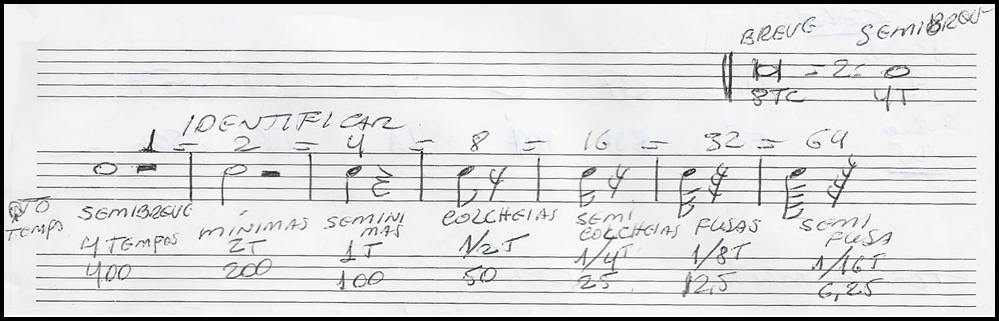 BREVE SEMIBREV
= 2 =
8TC 4T
IDENTIFICAR
1 = 2 = 4 = 8 = 16 = 32 = 64
TEMPO
SEMIBREVE MÍNIMAS SEMINI COLCHEIAS SEMI FUSAS SEMI
MAS COLCHEIAS FUSA
4 TEMPOS 2T 1T 1/2T 1/4T 1/8T 1/16T
400 200 100 50 25 12,5 6,25